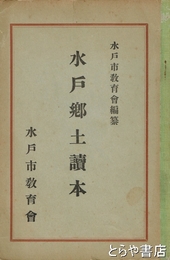 水戸市敎育會編纂
水戸鄕土讀本
水戸市敎育會
とらや書店